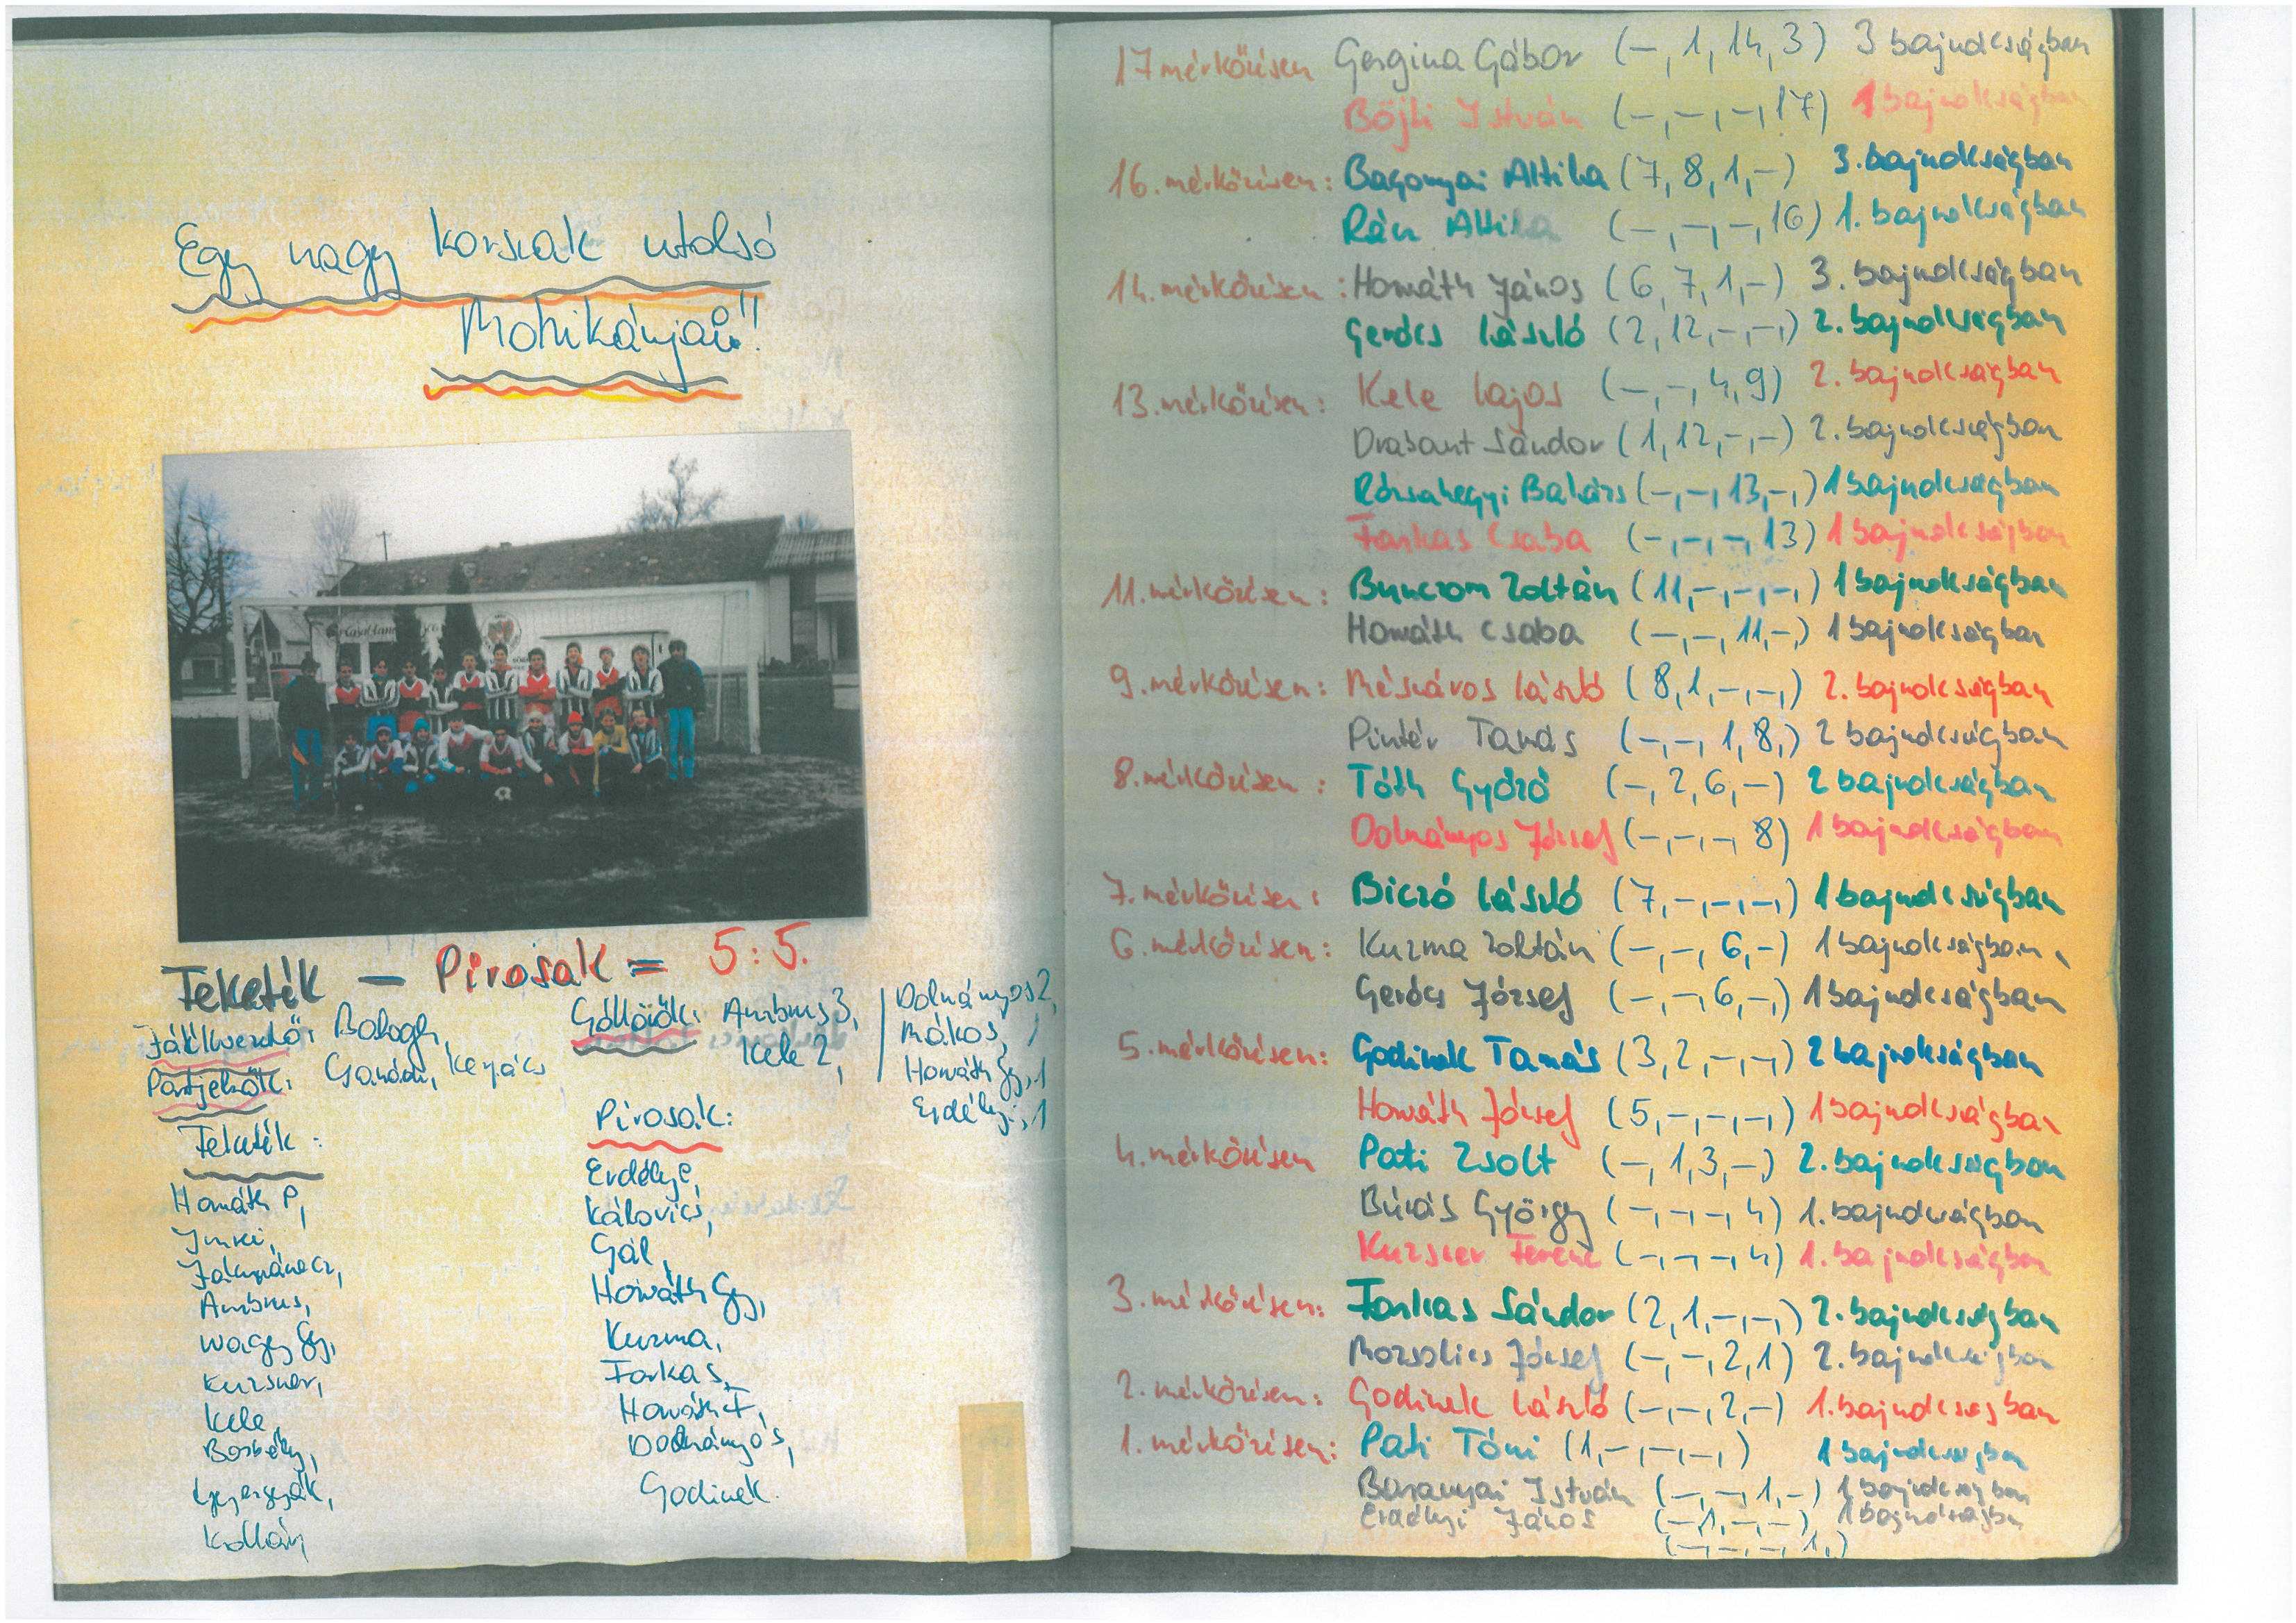 Egy nagy korszak utolsó
Mohikánjai!!
Feketék – Pirosak = 5:5.
Játékvezető: Balogh,
Partjelzők:
Góllövők: Ambrus 3,
Kele 2,
Dolmányos 2,
Mákos, 1
Horváth Gy, 1
Erdélyi, 1
Feketék:
Horváth P,
Imrei,
Ambrus,
Nagy Gy,
Kurzner,
Kele,
Borbély,
Gyergyák,
Kollár,
Pirosak:
Erdélyi,
Kálovics,
Gál,
Horváth Gy,
Kuzma,
Farkas,
Horváth F,
Dolmányos,
Godinek.
17 mérkőzésen Gergina Gábor (–, 1, 14, 3) 3 bajnokságban
Böjti István (–, –, –, 17) 1 bajnokságban
16. mérkőzésen: Bagonyai Attila (7, 8, 1, –) 3. bajnokságban
Rácz Attila (–, –, –, 16) 1. bajnokságban
14. mérkőzésen: Horváth János (6, 7, 1, –) 3. bajnokságban
Gerócs László (2, 12, –, –,) 2. bajnokságban
13. mérkőzésen: Kele Lajos (–, –, 4, 9) 2. bajnokságban
Drabant Sándor (1, 12, –, –) 2. bajnokságban
Rózsahegyi Balázs (–, –, 13, –,) 1 bajnokságban
Farkas Csaba (–, –, –, 13) 1 bajnokságban
11. mérkőzésen: Bunczom Zoltán (11, –, –, –,) 1 bajnokságban
Horváth Csaba (–, –, 11, –,) 1 bajnokságban
9. mérkőzésen: Mészáros László (8, 1, –, –,) 2. bajnokságban
Pintér Tamás (–, –, 1, 8,) 2 bajnokságban
8. mérkőzésen: Tóth Győző (–, 2, 6, –) 2 bajnokságban
Dolmányos József (–, –, –, 8) 1 bajnokságban
7. mérkőzésen: Biczó László (7, –, –, –,) 1 bajnokságban
6. mérkőzésen: Kuzma Zoltán (–, –, 6, –) 1 bajnokságban
Gerócs József (–, –, 6, –,) 1 bajnokságban
5. mérkőzésen: Godinek Tamás (3, 2, –, –,) 2 bajnokságban
Horváth József (5, –, –, –,) 1 bajnokságban
4. mérkőzésen Pati Zsolt (–, 1, 3, –) 2. bajnokságban
Búzás György (–, –, –, 4) 1. bajnokságban
Kurzner Ferenc (–, –, –, 4) 1. bajnokságban
3. mérkőzésen: Farkas Sándor (2, 1, –, –,) 2. bajnokságban
Mozsolics József (–, –, 2, 1) 2. bajnokságban
2. mérkőzésen: Godinek László (–, –, 2, –) 1. bajnokságban
1. mérkőzésen: Pati Tóni (1, –, –, –,) 1 bajnokságban
Baranyai István (–, –, 1, –) 1 bajnokságban
Erdélyi János (–, 1, –, –) 1 bajnokságban
(–, –, –, 1,)